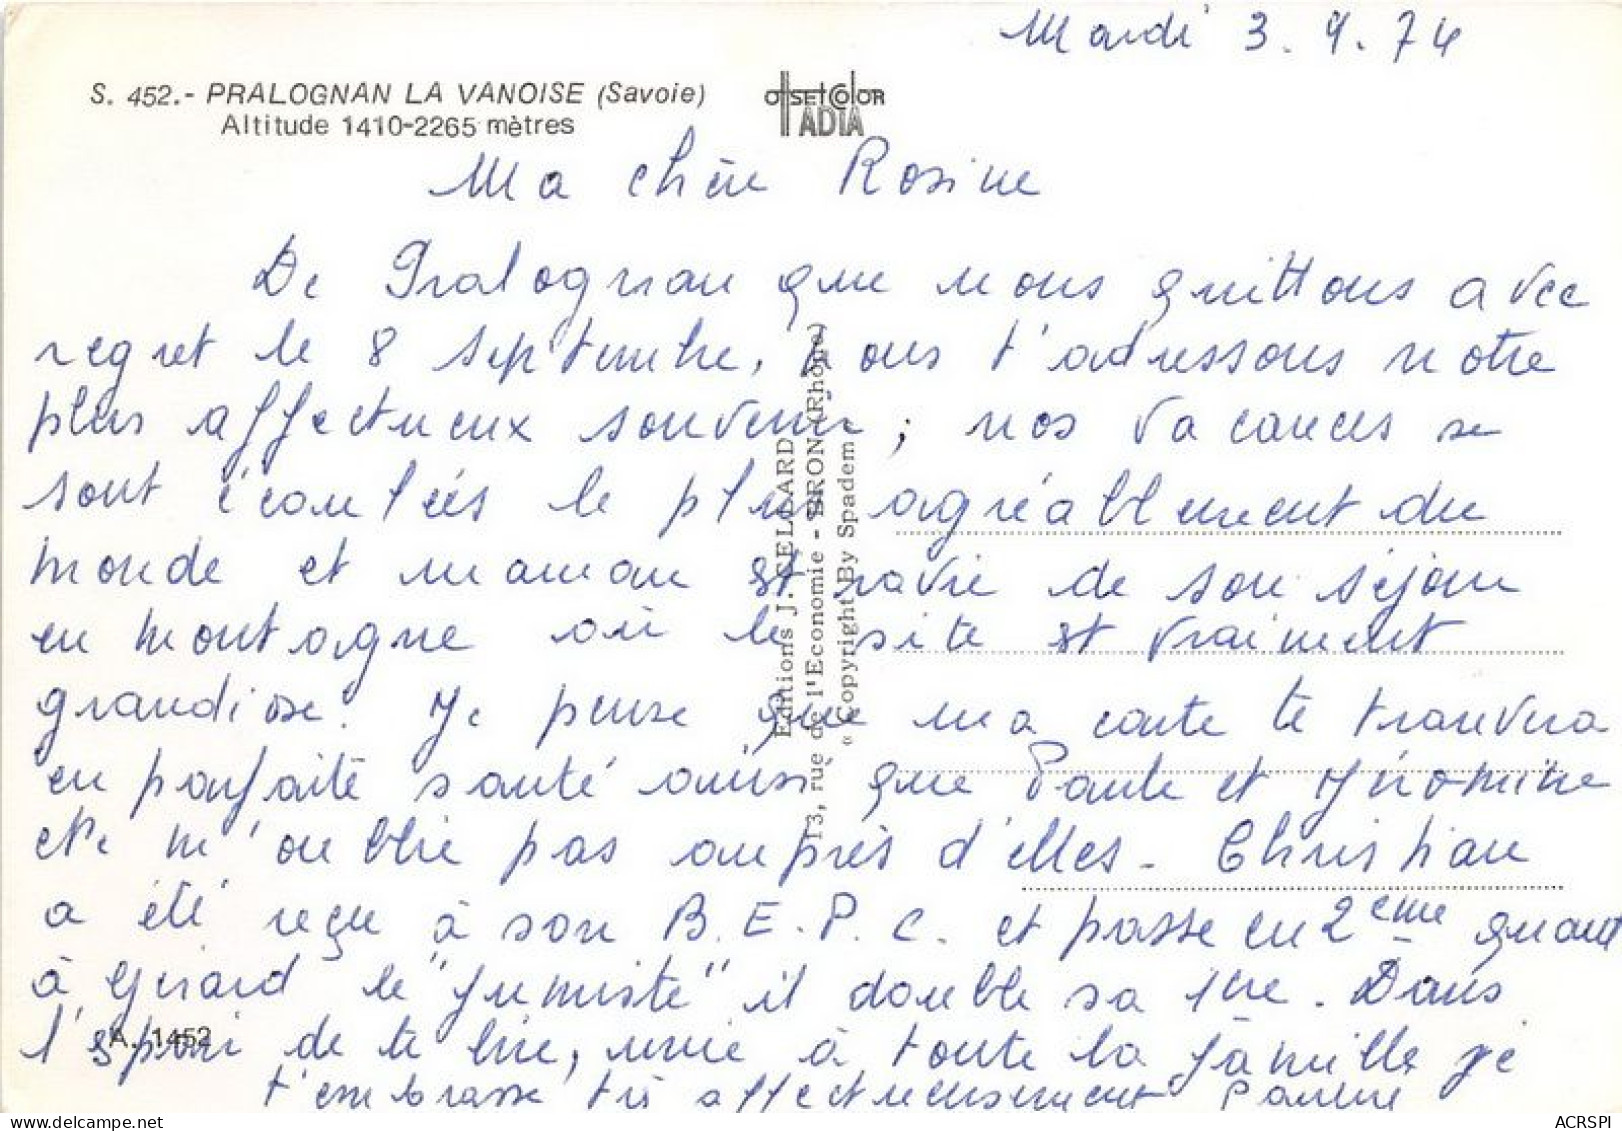 Mardi 3.9.74
S. 452.- PRALOGNAN LA VANOISE (Savoie)
Altitude 1410-2265 mètres
OFFSETCOLOR
TADIA
Ma chère Rosine
De Pralognan que nous quittons avec
regret le 8 Septembre, nous t'adressons notre
plus affectueux souvenir ; nos vacances se
sont écoulées le plus agréablement du
monde et maman est ravie de son séjour
en montagne où le site est vraiment
grandiose. Je pense que ma carte te trouvera
en parfaite santé ainsi que Paule et Jéromine
Ne m'oublie pas auprès d'elles - Christian
a été reçu à son B.E.P.C. et passe en 2ème quant
à Gérard le "fumiste" il double sa 1ère. Dans
l'espoir de te lire, unie à toute la famille je
t'embrasse très affectueusement Pauline
Editions J. CELLARD
13, rue de l'Economie - BRON (Rhône)
« Copyright By Spadem »
A. 1452
ACRSPI